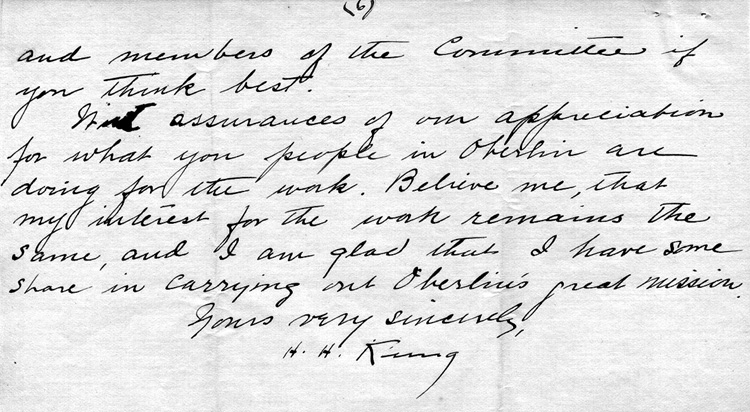 (6)
and members of the Committee if
you think best.
With assurances of our appreciation
for what you people in Oberlin are
doing for the work. Believe me, that
my interest for the work remains the
same, and I am glad that I have some
share in carrying out Oberlin's great mission.
Yours very sincerely,
H. H. Kung